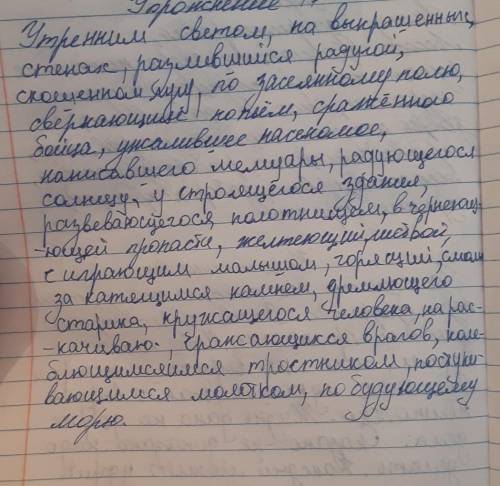 Упражнение
Утренним светом, на выкрашенных
стенах, разлившийся радугой,
скошенном лугу, по засеянному полю,
сверкающие копьём, сражённого
бойца, ужалившее насекомое,
написавшего мемуары, радующегося
солнцу, у строящегося здания,
развевающегося полотнищем, в чернею-
-ющей пропасти, желтеющий листвой,
с играющим малышом, горящий,
за катящимся камнем, дремлющего
старика, кружащегося человека, на рас-
-качиваю. , сражающихся врагов, коле-
блющимсяимся тростником, постуки-
вающимся молотком, по будующему
морю.